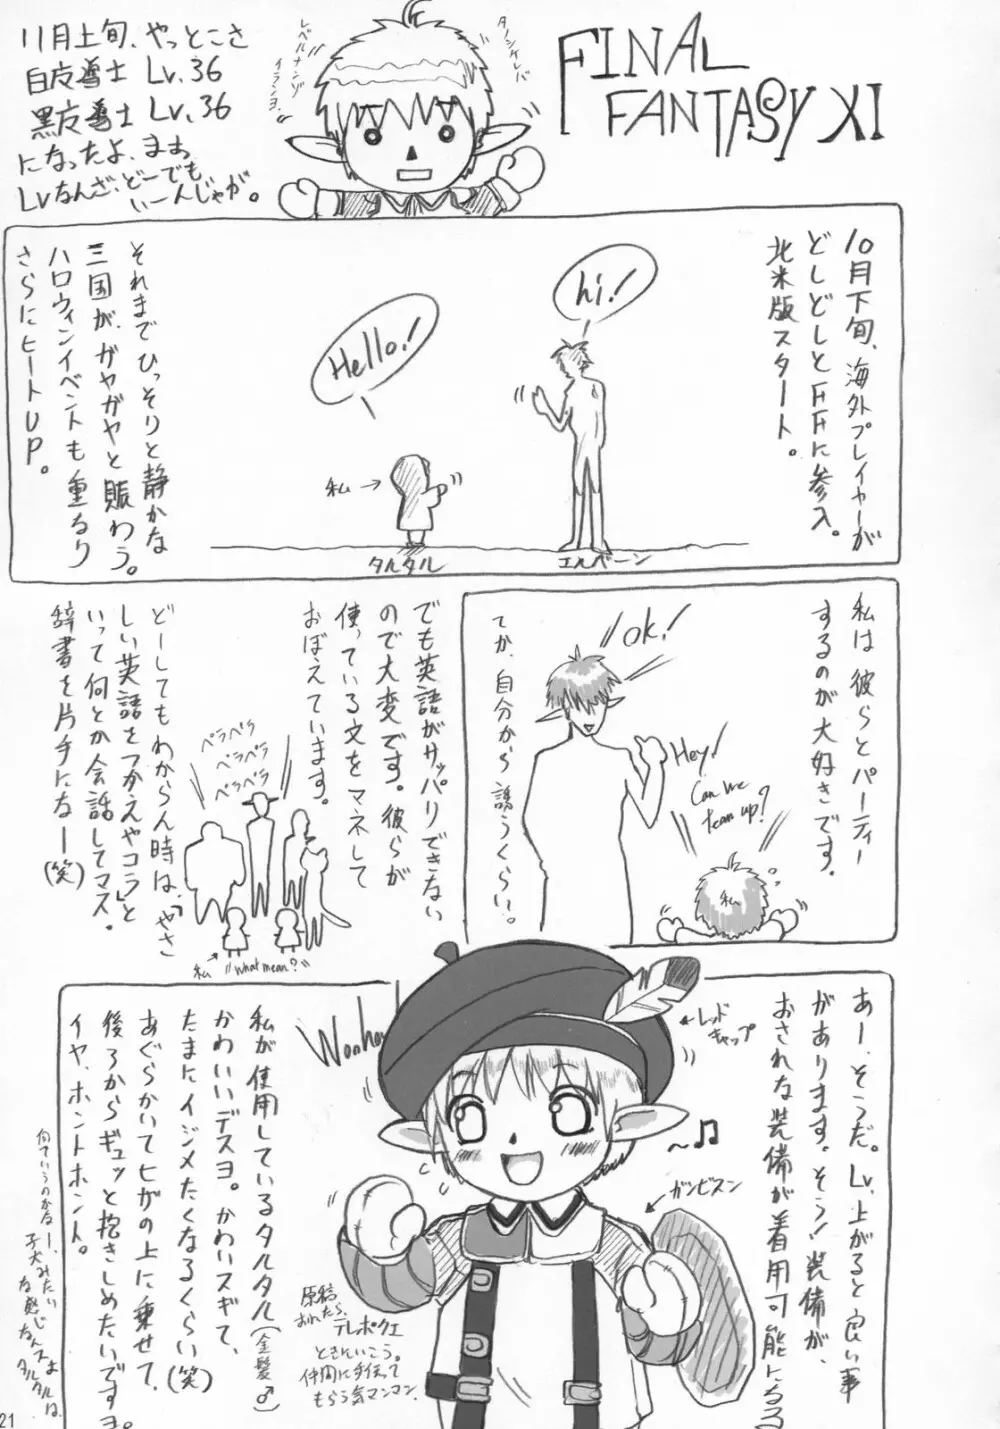 11月上旬、やっとこさ
白魔導士 Lv.36
黒魔導士 Lv.36
になったよ、まぁ
Lvなんざ、どーでも
いーんじゃが。
レベルナンゾ
イランヨ
タノシケレバ
FINAL
FANTASY XI
10月下旬、海外プレイヤーが
どしどしとFFに参入。
北米版スタート。
hi!
Hello!
私→
タルタル
エルバーン
それまでひっそりと静かな
三国が、ガヤガヤと賑わう。
ハロウィンイベントも重なり
さらにヒートUP。
私は彼らとパーティ
するのが大好きです。
ok!
Hey!
Can we
team up?
私
てか、自分から誘うくらい。
でも英語がサッパリできない
ので大変です。彼らが
使っている文をマネして
おぼえています。
どーしてもわからん時は、「やさ
しい英語をつかえやコラ」と
いって何とか会話してマス。
辞書を片手になー(笑)
ペラペラ
ペラペラ
ペラペラ
私
"what mean?"
あー、そうだ。Lv.上がると良い事
があります。そう!装備が、
おされな装備が着用可能になる
←レッド
キャップ
ガンビスン
私が使用しているタルタル(金髪♂)
かわいいデスヨ。かわいスギて、
たまにイジメたくなるくらい(笑)
あぐらかいてヒザの上に乗せて、
後ろからギュッと抱きしめたいですョ。
イヤ、ホントホント。
何ていうのかなー、
子犬みたい
な感じなんスよ
タルタルは。
原稿
おわたら、
テレポクエ
ときにいこう。
仲間に手伝って
もらう気マンマン。
21